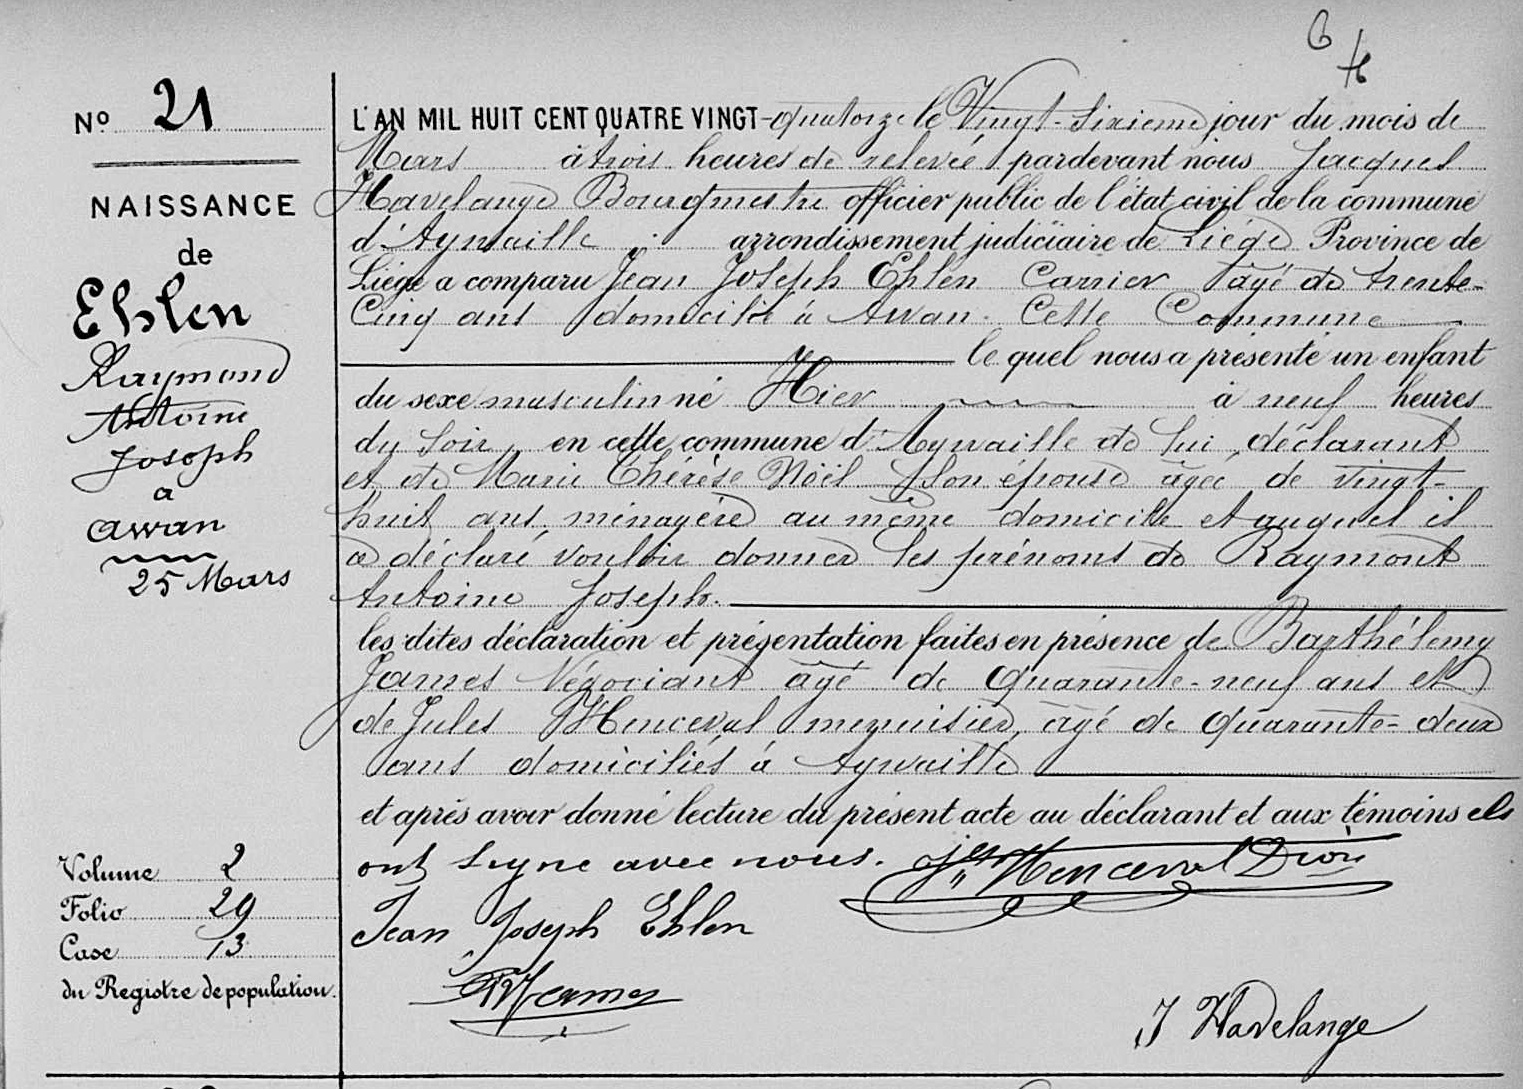 No 21
NAISSANCE
de
Ehlen
Raymond
Antoine
Joseph
a
awan
25 Mars
Volume 2
Folio 29
Case 13
du Registre de population.
L'AN MIL HUIT CENT QUATRE VINGT-quatorze le Vingt-Sixième jour du mois de
Mars à trois heures de relevée pardevant nous Jacques
Havelange Bourgmestre officier public de l'état civil de la commune
d'Aywaille arrondissement judiciaire de Liége Province de
Liége a comparu Jean Joseph Ehlen Carrier âgé de trente-
Cinq ans domicilié à Awan. Cette Commune
le quel nous a présenté un enfant
du sexe masculin né Hier à neuf heures
du Soir, en cette commune d'Aywaille de lui déclarant
et de Marie Thérèse Noël Son épouse âgée de vingt-
huit ans, ménagère au même domicile et auquel il
a déclaré vouloir donner les prénoms de Raymont
Antoine Joseph.
les dites déclaration et présentation faites en présence de Barthélemy
James Négociant âgé de Quarante-neuf ans et
de Jules Henceval menuisier, âgé de quarante-deux
ans domiciliés à Aywaille
et après avoir donné lecture du présent acte au déclarant et aux témoins ils
ont signé avec nous. Jles Henceval
Jean Joseph Ehlen
James
J Havelange